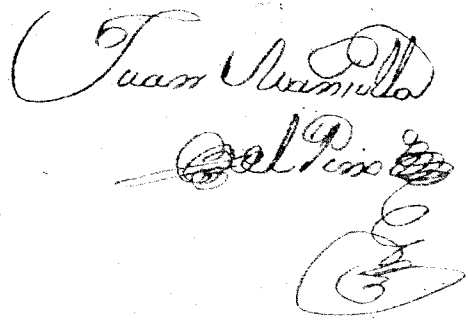 Juan Mantilla
del Pino